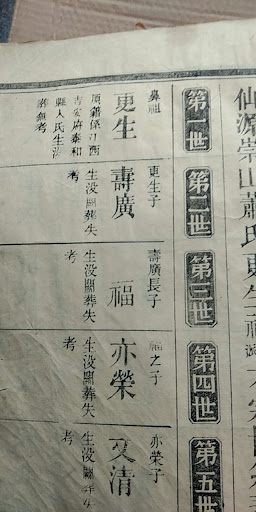 仙源崇山蕭氏更生
第一世
鼻祖
更生
原籍係江西
吉安府泰和
縣人氏生沒
第二世
更生子
壽廣
生没闕葬失
考
第三世
壽廣長子
福
生没闕葬失
考
第四世
福之子
亦榮
生没闕葬失
考
第五世
亦榮子
文清
生没闕葬失
考